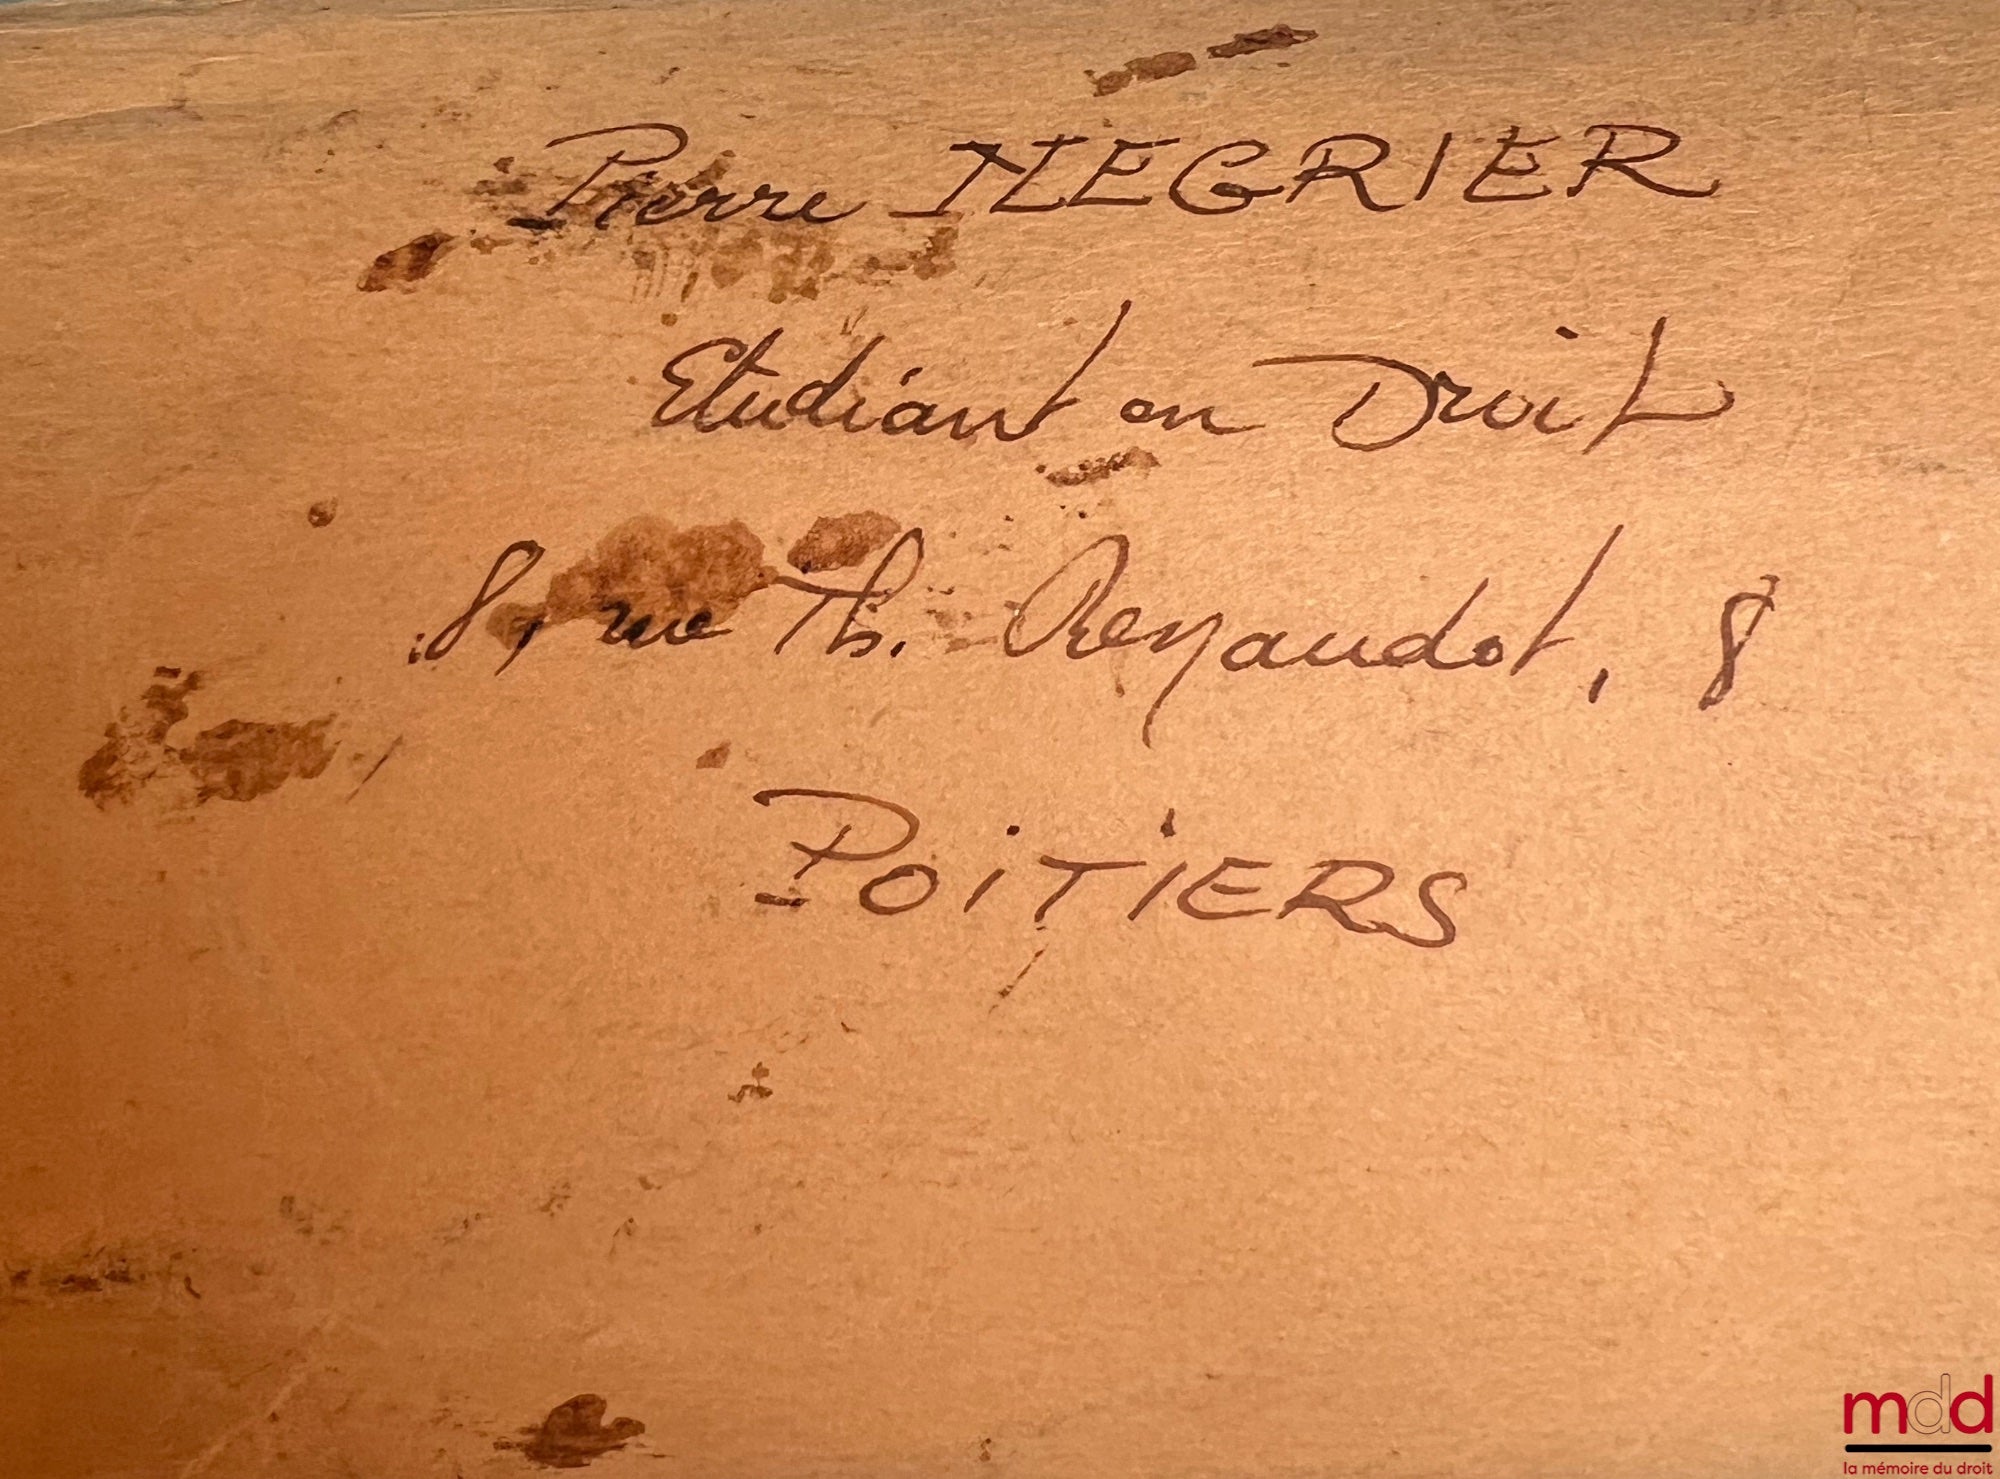 Pierre NEGRIER
Etudiant en Droit
8, rue Th. Renaudot, 8
POiTiERS
mdd
la mémoire du droit